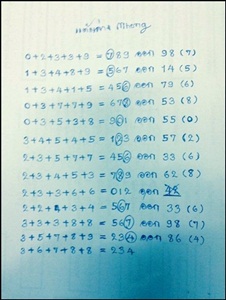 0+2+3+3+9 = 789 ออก 98 (7)
1+3+4+8+9 = 567 ออก 14 (5)
1+3+5+1+5 = 456 ออก 79 (6)
0+3+7+7+9 = 678 ออก 53 (8)
0+5+3+4+8 = 901 ออก 55 (0)
3+4+5+4+5 = 123 ออก 57 (2)
2+3+5+7+7 = 456 ออก 33 (6)
2+3+4+5+3 = 789 ออก 62 (8)
2+3+3+6+6 = 012 ออก
2+2+4+3+4 = 567 ออก 33 (6)
3+3+3+8+8 = 567 ออก 98 (7)
3+5+7+8+9 = 234 ออก 86 (4)
3+6+7+8+8 = 234